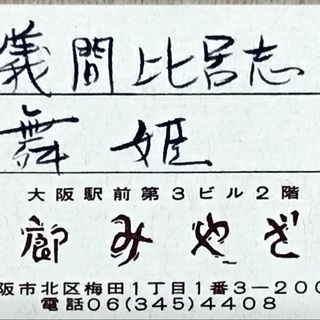 義間比呂志
舞姫
大阪駅前第3ビル2階
廊みやざ
阪市北区梅田1丁目1番3-200
電話06(345)4408